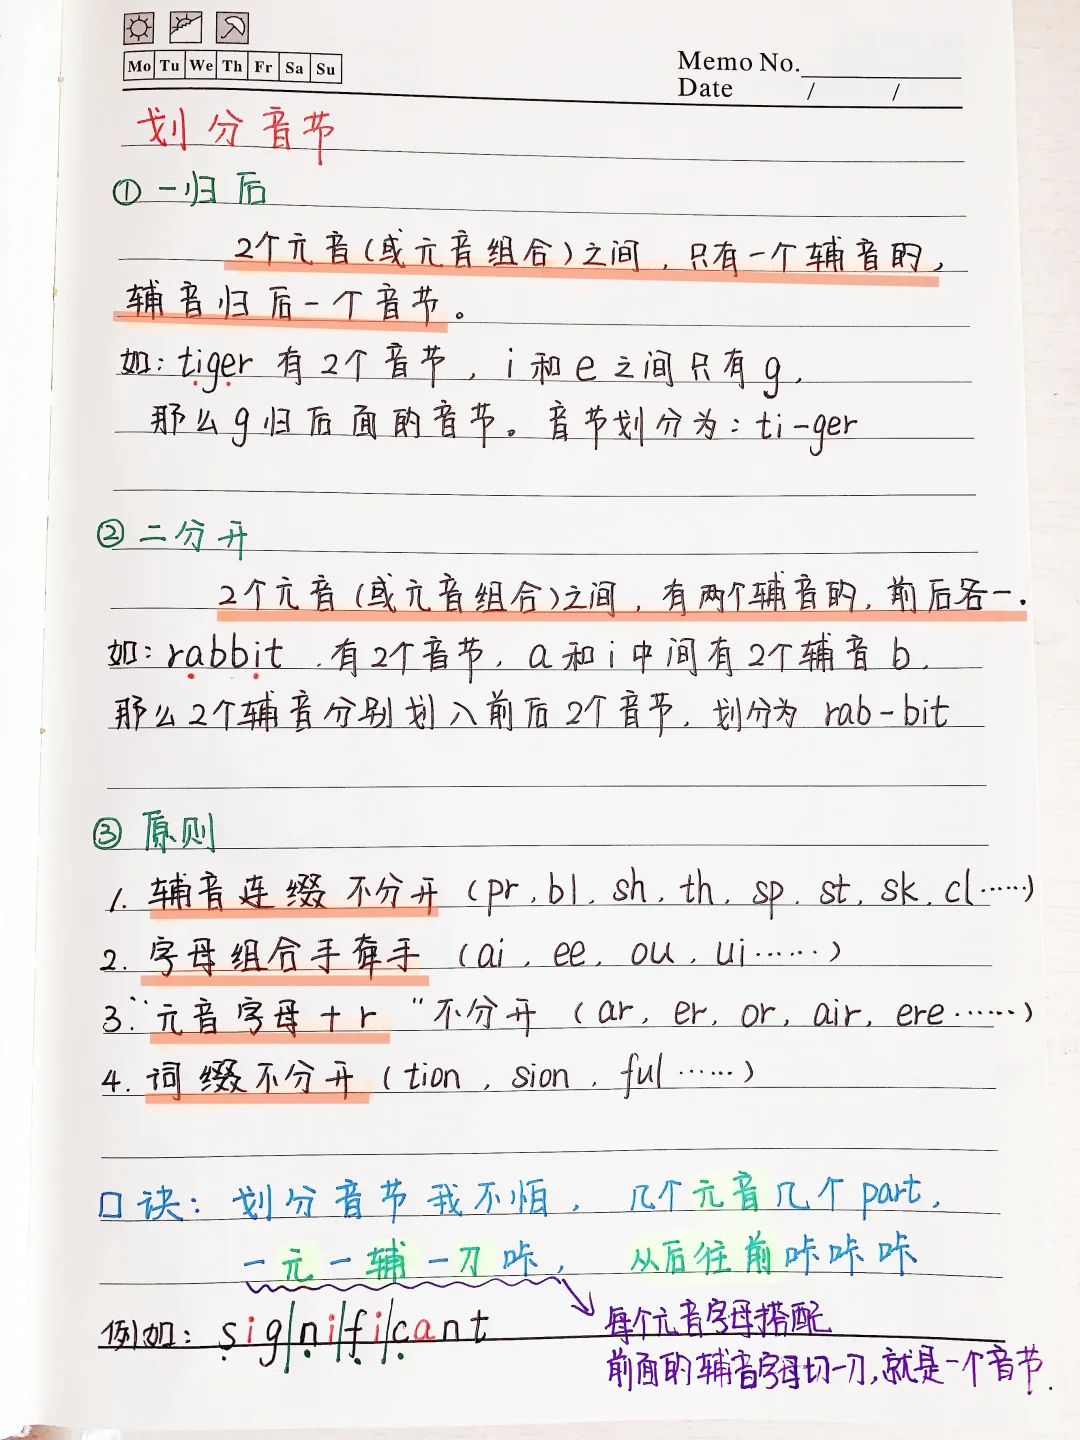 Mo Tu We Th Fr Sa Su
Memo No.
Date / /
划分音节
① 一归后
2个元音(或元音组合)之间，只有一个辅音的，
辅音归后一个音节。
如: tiger 有2个音节，i和e之间只有g，
那么g归后面的音节。音节划分为: ti-ger
② 二分开
2个元音(或元音组合)之间，有两个辅音的，前后各一.
如: rabbit，有2个音节，a和i中间有2个辅音b，
那么2个辅音分别划入前后2个音节，划分为 rab-bit
③ 原则
1. 辅音连缀不分开 (pr, bl, sh, th, sp, st, sk, cl……)
2. 字母组合手牵手 (ai, ee, ou, ui……)
3. “元音字母+r”不分开 (ar, er, or, air, ere……)
4. 词缀不分开 (tion, sion, ful……)
口诀: 划分音节我不怕，几个元音几个part，
一元一辅一刀咔，从后往前咔咔咔
例如: sig|ni|fi|cant
每个元音字母搭配
前面的辅音字母切一刀,就是一个音节.